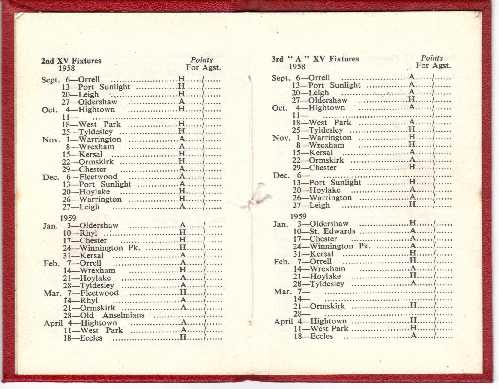 2nd XV Fixtures Points
1958 For Agst.
Sept. 6—Orrell H
13—Port Sunlight H
20—Leigh H
27—Oldershaw A
Oct. 4—Hightown H
11
18—West Park H
25—Tyldesley H
Nov. 1—Warrington A
8—Wrexham A
15—Kersal H
22—Ormskirk H
29—Chester A
Dec. 6—Fleetwood A
13—Port Sunlight A
20—Hoylake H
26—Warrington H
27—Leigh A
1959
Jan. 3—Oldershaw A
10—Rhyl H
17—Chester H
24—Winnington Pk. H
31—Kersal A
Feb. 7—Orrell A
14—Wrexham H
21—Hoylake A
28—Tyldesley A
Mar. 7—Fleetwood H
14—Rhyl A
21—Ormskirk A
28—Old Anselmians
April 4—Hightown A
11—West Park A
18—Eccles H
3rd " A " XV Fixtures Points
1958 For Agst.
Sept. 6—Orrell A
13—Port Sunlight A
20—Leigh A
27—Oldershaw H
Oct. 4—Hightown A
11—
18—West Park A
25—Tyldesley H
Nov. 1—Warrington H
8—Wrexham H
15—Kersal A
22—Ormskirk A
29—Chester H
Dec. 6—
13—Port Sunlight H
20—Hoylake A
26—Warrington A
27—Leigh H
1959
Jan. 3—Oldershaw H
10—St. Edwards A
17—Chester A
24—Winnington Pk. A
31—Kersal H
Feb. 7—Orrell H
14—Wrexham A
21—Hoylake H
28—Tyldesley A
Mar. 7—
14—
21—Ormskirk H
28—
April 4—Hightown H
11—West Park H
18—Eccles A